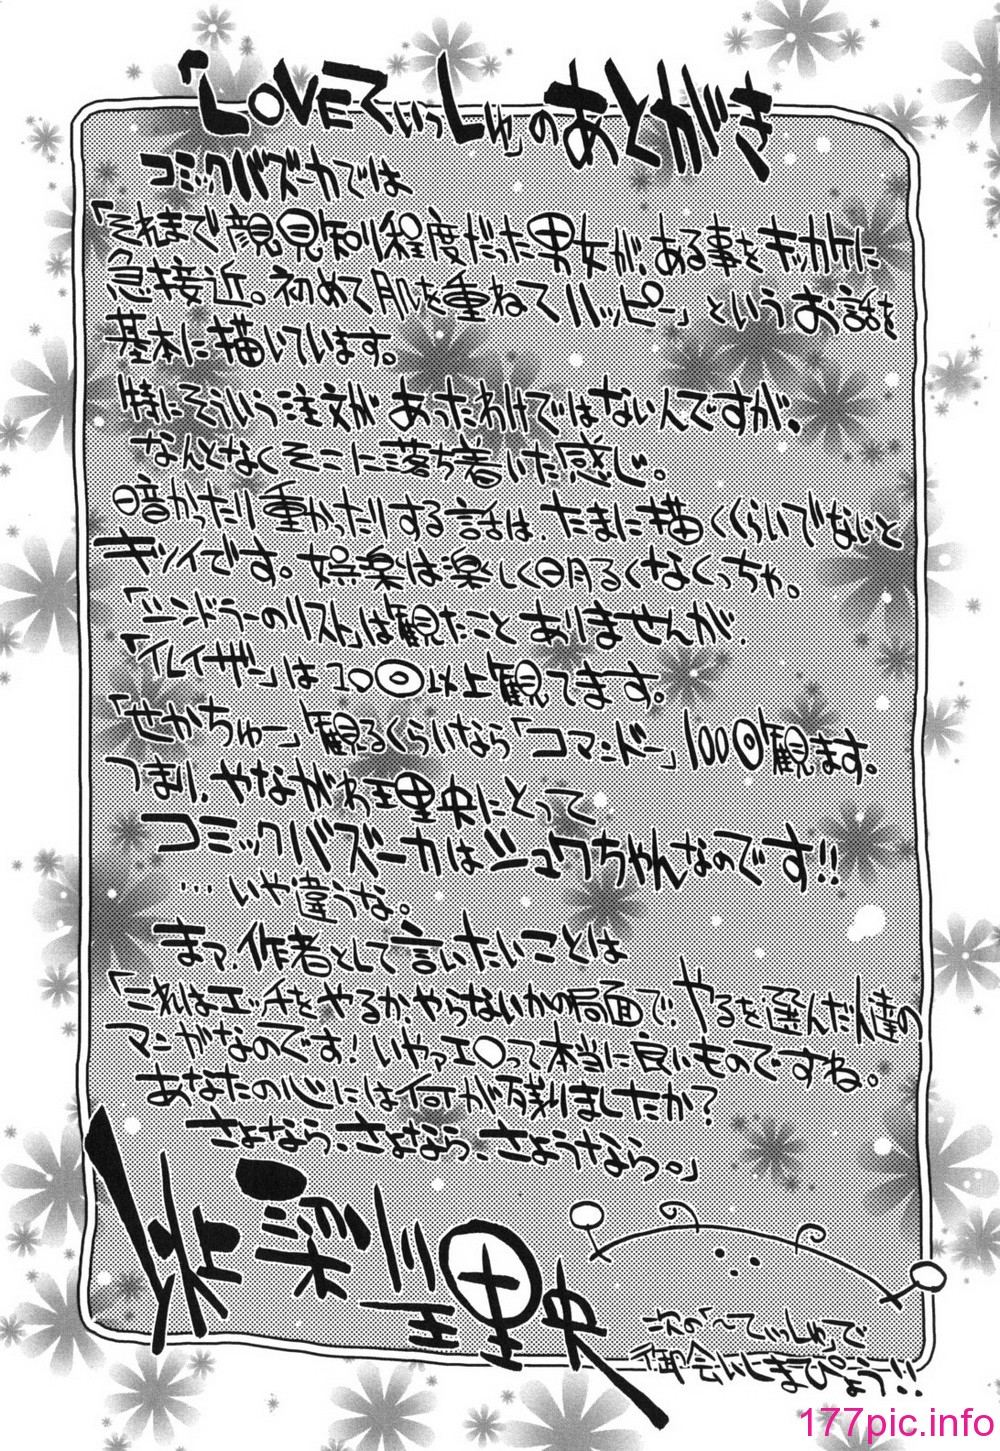 「LOVEてぃっしゅ」のあとがき
コミックバズーカでは
「それまで顔見知り程度だった男女が、ある事をキッカケに
急接近。初めて肌を重ねてハッピー」というお話を
基本に描いています。
特にそういう注文があったわけではないんですが、
なんとなくそこに落ち着いた感じ。
暗かったり重かったりする話は、たまに描くくらいでないと
キツイです。娯楽は楽しく明るくなくっちゃ。
「シンドラーのリスト」は観たことありませんが、
「イレイザー」は20回以上観てます。
「せかちゅー」観るくらいなら「コマンドー」100回観ます。
つまり、やながわ理央にとって
コミックバズーカはシュワちゃんなのです!!
…いや違うな。
まァ、作者として言いたいことは
「これはエッチをやるか、やらないかの局面で、やるを選んだ人達の
マンガなのです!いやァエロって本当に良いものですね。
あなたの心には何が残りましたか?
さよなら、さよなら、さようなら。」
理央
次の「〜てぃっしゅ」で
御会いしまぴょう!!
177pic.info